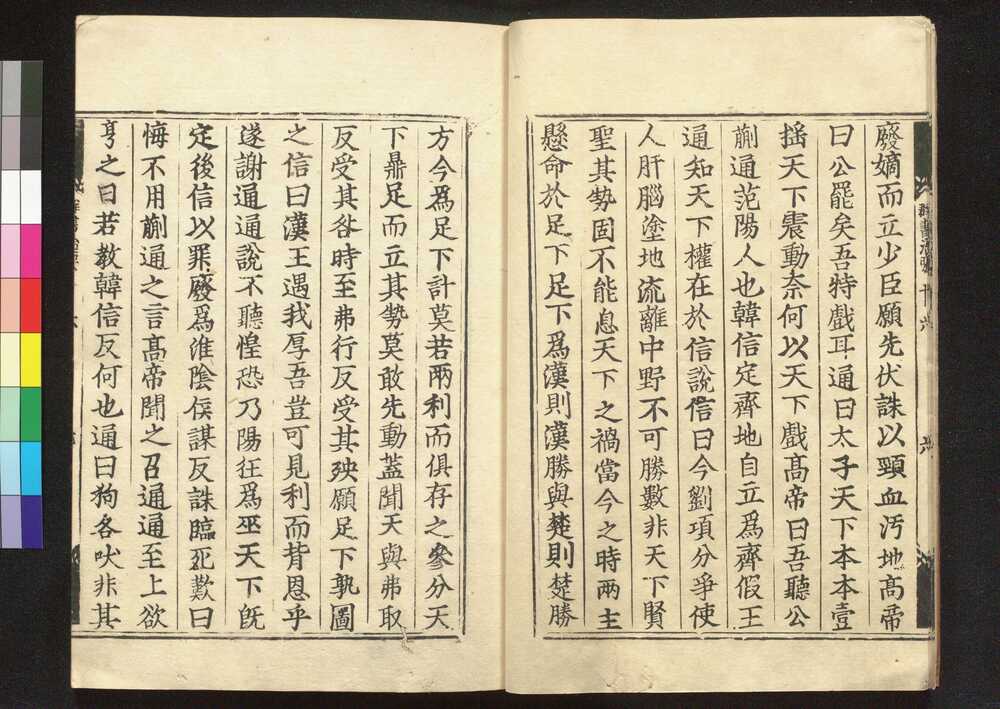 廢嫡而立少臣願先伏誅以頸血汚地髙帝
曰公罷矣吾特戲耳通曰太子天下本本壹
揺天下震動柰何以天下戲髙帝曰吾聽公
蒯通范陽人也韓信定齊地自立爲齊假王
通知天下權在於信說信曰今劉項分爭使
人肝腦塗地流離中野不可勝數非天下賢
聖其勢固不能息天下之禍當今之時兩主
懸命於足下足下爲漢則漢勝與楚則楚勝
方今爲足下計莫若兩利而俱存之參分天
下鼎足而立其勢莫敢先動蓋聞天與弗取
反受其咎時至弗行反受其殃願足下孰圖
之信曰漢王遇我厚吾豈可見利而背恩乎
遂謝通通說不聽惶恐乃陽狂爲巫天下旣
定後信以罪廢爲淮陰侯謀反誅臨死歎曰
悔不用蒯通之言髙帝聞之召通通至上欲
亨之曰若教韓信反何也通曰狗各吠非其
群書治要 十六 六